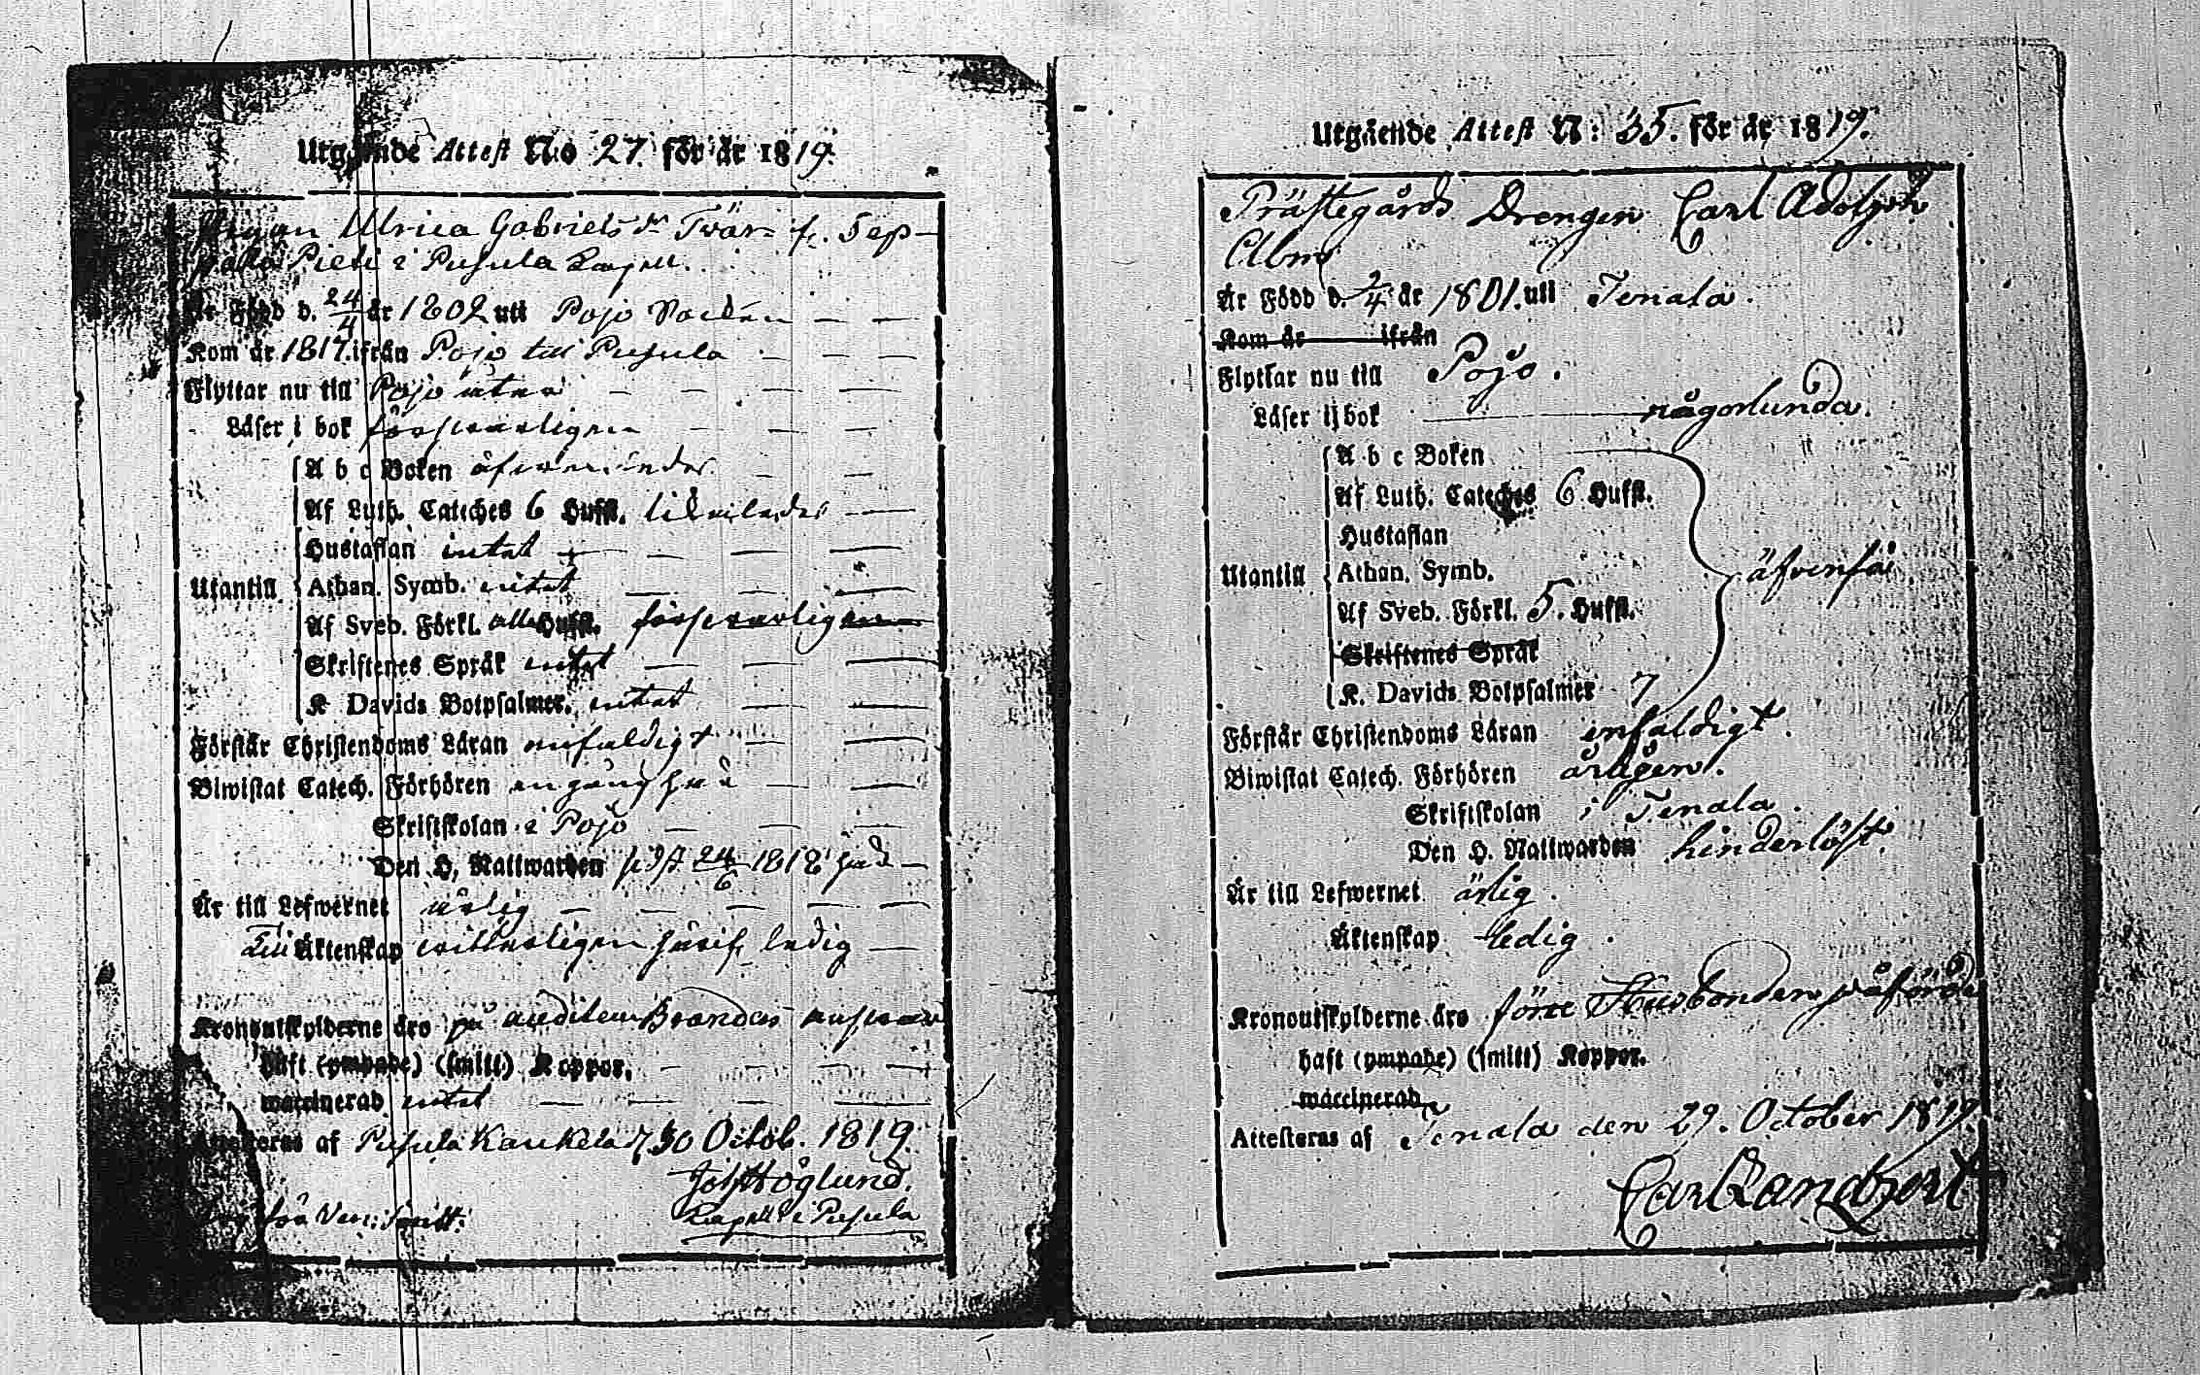 Utgående Attest No 27. för år 1819.
Pigan Ulrica Gabrielsdr Tvär fr. Sep-
Pieli i Pusula Capell.
Är Född d. 24/4 år 1802 uti Pojo Socken
Kom år 1817. ifrån Pojo till Pusula
Flyttar nu till Pojo åter
Läser i bok försvarligen
A b c Boken
Af Luth. Catiches 6 Hufst.
Hustaflan intet
Utantill
Athan. Symb. intet
Af Sveb. Förkl. alla Hufst. försvarligen
Skriftenes Språk intet
K Davids Botpsalmer. intet
Förstår Christendoms Läran enfaldigt
Biwistat Catech. Förhören en gång här
Skriftskolan i Pojo
Den H. Nattwarden sidst 24/6 1818 här
Är till Lefwernet ärlig
Till Äktenskap witterligen ledig
Kronoutskylderne äro på Brandas ansvar
haft (ympade) (smitt) Koppor.
waccinerad intet
Attesteras af Pusula Kaukela d. 30 Octob. 1819.
Joh Höglund.
Capell i Pusula
Utgående Attest N: 35. för år 1819.
Prästegårds Drengen Carl Adolph
Alm
Är Född d. 2/4 år 1801. uti Tenala.
Kom år ifrån
Flyttar nu till Pojo.
Läser i bok någorlunda.
A b c Boken
Af Luth. Cateches 6 Hufst.
Hustaflan
Utantill Athan. Symb. äfvenså
Af Sveb. Förkl. 5. Hufst.
Skriftenes Språk
K. Davids Botpsalmer 7
Förstår Christendoms Läran enfaldigt.
Biwistat Catech. Förhören årligen.
Skriftskolan i Tenala.
Den H. Nattwarden hinderlöst.
Är till Lefwernet ärlig.
Äktenskap ledig.
Kronoutskylderne äro förre Husbonden påförde
haft (ympade) (smitt) Koppor.
waccinerad
Attesteras af Tenala den 29. October 1819.